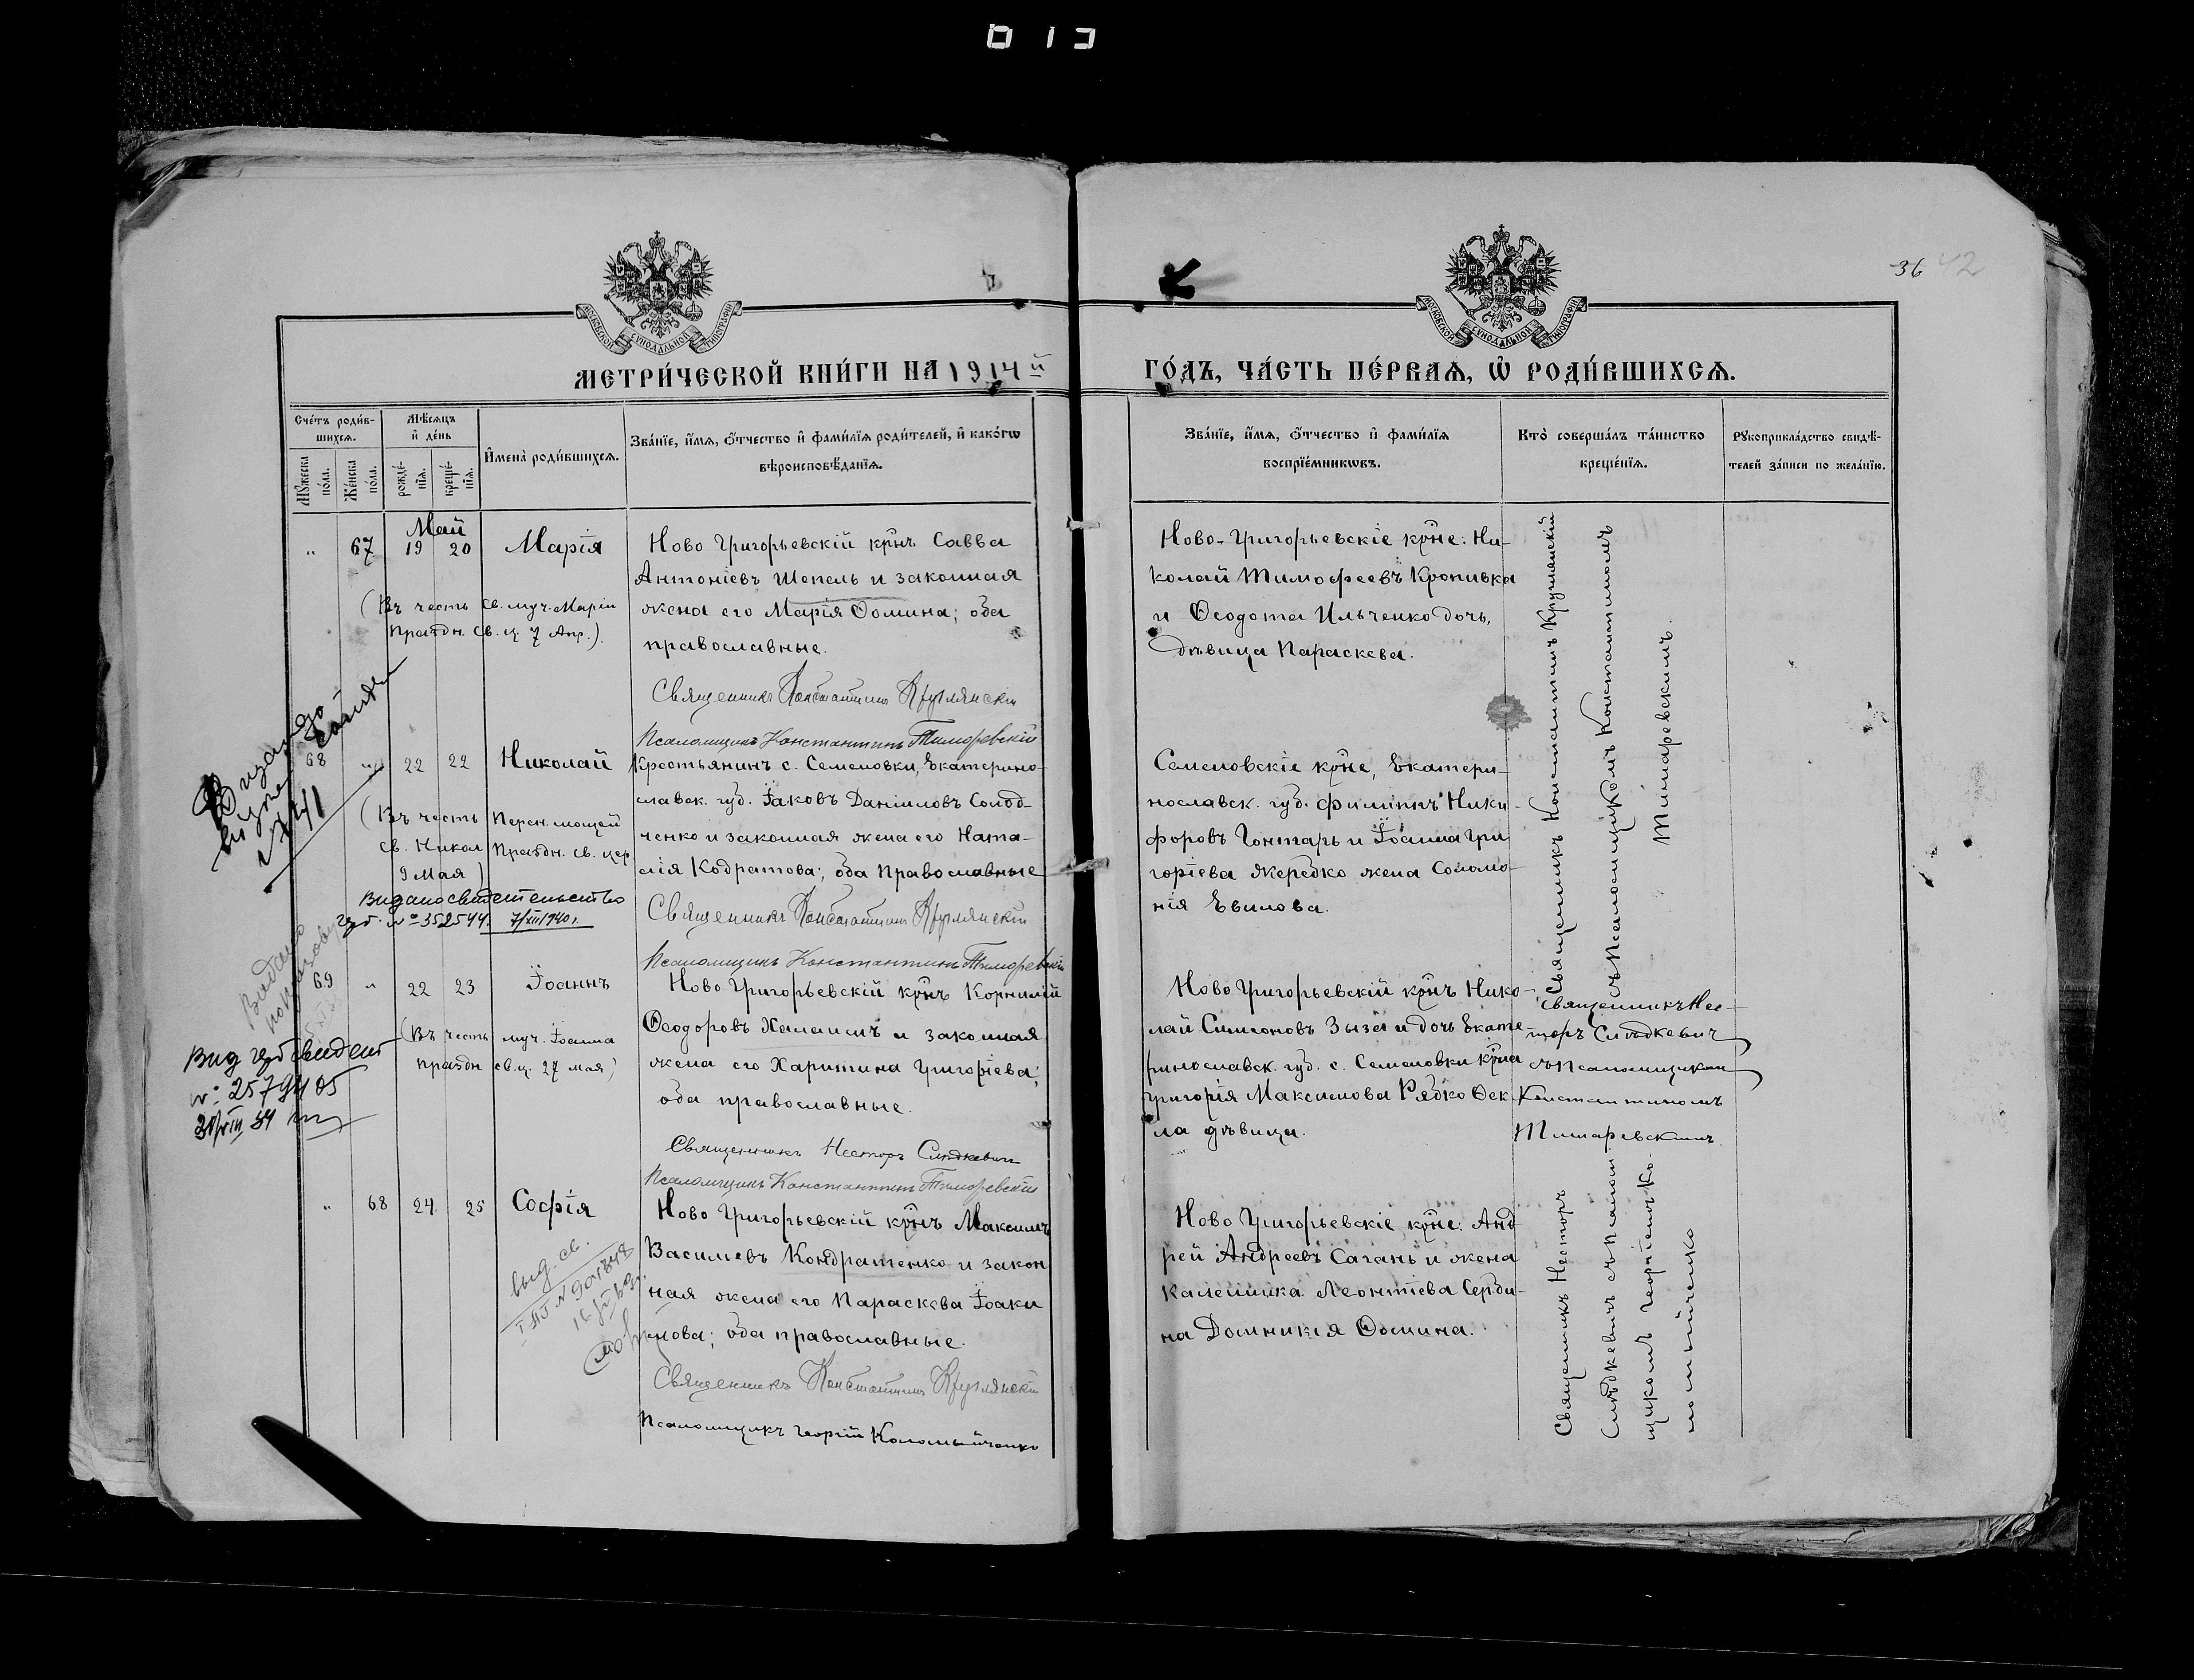 36 42
МОСКОВСКОЙ СѴНОДАЛЬНОЙ ТИПОГРАФІИ
МОСКОВСКОЙ СѴНОДАЛЬНОЙ ТИПОГРАФІИ
МЕТРИ́ЧЕСКОЙ КНИ́ГИ НА 1914й
ГО́ДЪ, ЧА́СТЬ ПЕ́РВАѦ, Ѡ РОДИ́ВШИХСѦ.
Сче́тъ роди́в-
шихсѧ.
Мꙋ́жеска
по́ла.
Же́нска
по́ла.
Мѣ́сѧцъ
и҆ де́нь
рожде́-
нїѧ.
креще́-
нїѧ.
И҆мена̀ роди́вшихсѧ.
Зва́нїе, и҆́мѧ, ѻ҆́тчество и҆ фами́лїѧ роди́телей, и҆ како́гѡ
вѣроисповѣ́данїѧ.
Зва́нїе, и҆́мѧ, ѻ҆́тчество и҆ фами́лїѧ
воспрїе́мникѡвъ.
Кто̀ соверша́лъ та́инство
креще́нїѧ.
Рꙋкоприкла́дство свидѣ́-
телей за́писи по жела́нїю.
Май
" 67 19 20 Марія
(Въ честь св. муч. Маріи
праздн. св. ц. 7 Апр.).
Ново Григорьевскій крнъ Савва
Антоніевъ Шепель и законная
жена его Марія Ѳомина; оба
православные.
Священникъ Константинъ Круглянскій
Псаломщикъ Константинъ Тимаревскій
Ново-Григорьевскіе крне: Ни-
колай Тимофеевъ Кропивка
и Ѳеодота Ильченко дочь,
дѣвица Параскева.
Священникъ Константинъ Круглянскій
съ Псаломщикомъ Константиномъ
Тимаревскимъ.
68 " 22 22 Николай
(Въ честь Перен. мощей
св. Никол праздн. св. цер
9 Мая)
Видано свидетельство
№ 352544. 7/III 1940 г.
Крестьянинъ с. Семеновки, Екатерино-
славск. губ. Іаковъ Даніиловъ Солод-
ченко и законная жена его Ната-
лія Кодратова; оба православные
Священникъ Константинъ Круглянскій
Псаломщикъ Константинъ Тимаревскій
Семеновскіе крне, Екатери-
нославск. губ. Филиппъ Ники-
форовъ Гонтарь и Іоанна Гри
горіева Жередко жена Соломо-
нія Евилова.
69 " 22 23 Іоаннъ
(Въ честь муч. Іоанна
праздн св. ц. 27 мая)
Видано
Вид свидет
№: 2579405
Ново Григорьевскій крнъ Корнилій
Ѳеодоровъ Халаимъ и законная
жена его Харитина Григоріева;
оба православные.
Священникъ Несторъ Слѣдкевич
Псаломщикъ Константинъ Тимаревскій
Ново Григорьевскій крнъ Нико-
лай Симоновъ Зыза и дочь Екате
ринославск. губ. с. Семеновки крна
Григорія Максимова Рядко Ѳек
ла дѣвица.
Священникъ Нес-
торъ Слѣдкевич
съ Псаломщикомъ
Константиномъ
Тимаревскимъ.
" 68 24 25 Софія
выд. св.
Ново Григорьевскій крнъ Максимъ
Василіевъ Кондратенко и закон
ная жена его Параскева Іоаки
мова; оба православные.
Священникъ Константинъ Круглянскій
Псаломщикъ Георгій Коломыйченко
Ново Григорьевскіе крне: Анд
рей Андреевъ Сагань и жена
Калинника Леонтіева Серди-
на Домникія Ѳомина.
Священникъ Несторъ
Слѣдкевичъ съ Псалом
щикомъ Георгіемъ Ко-
ломыйченко